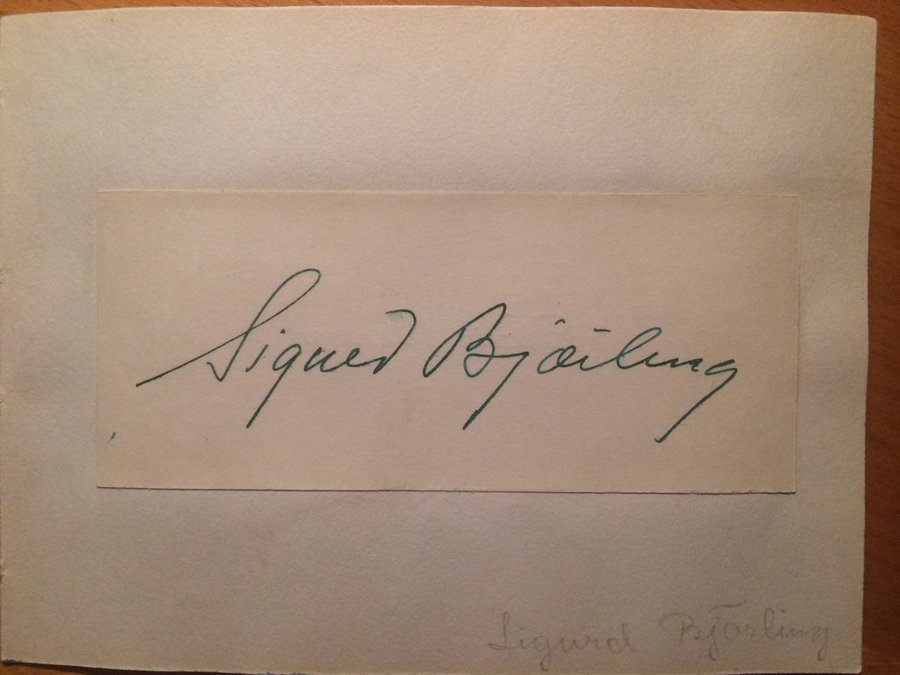 Sigurd Björling
Sigurd Björling